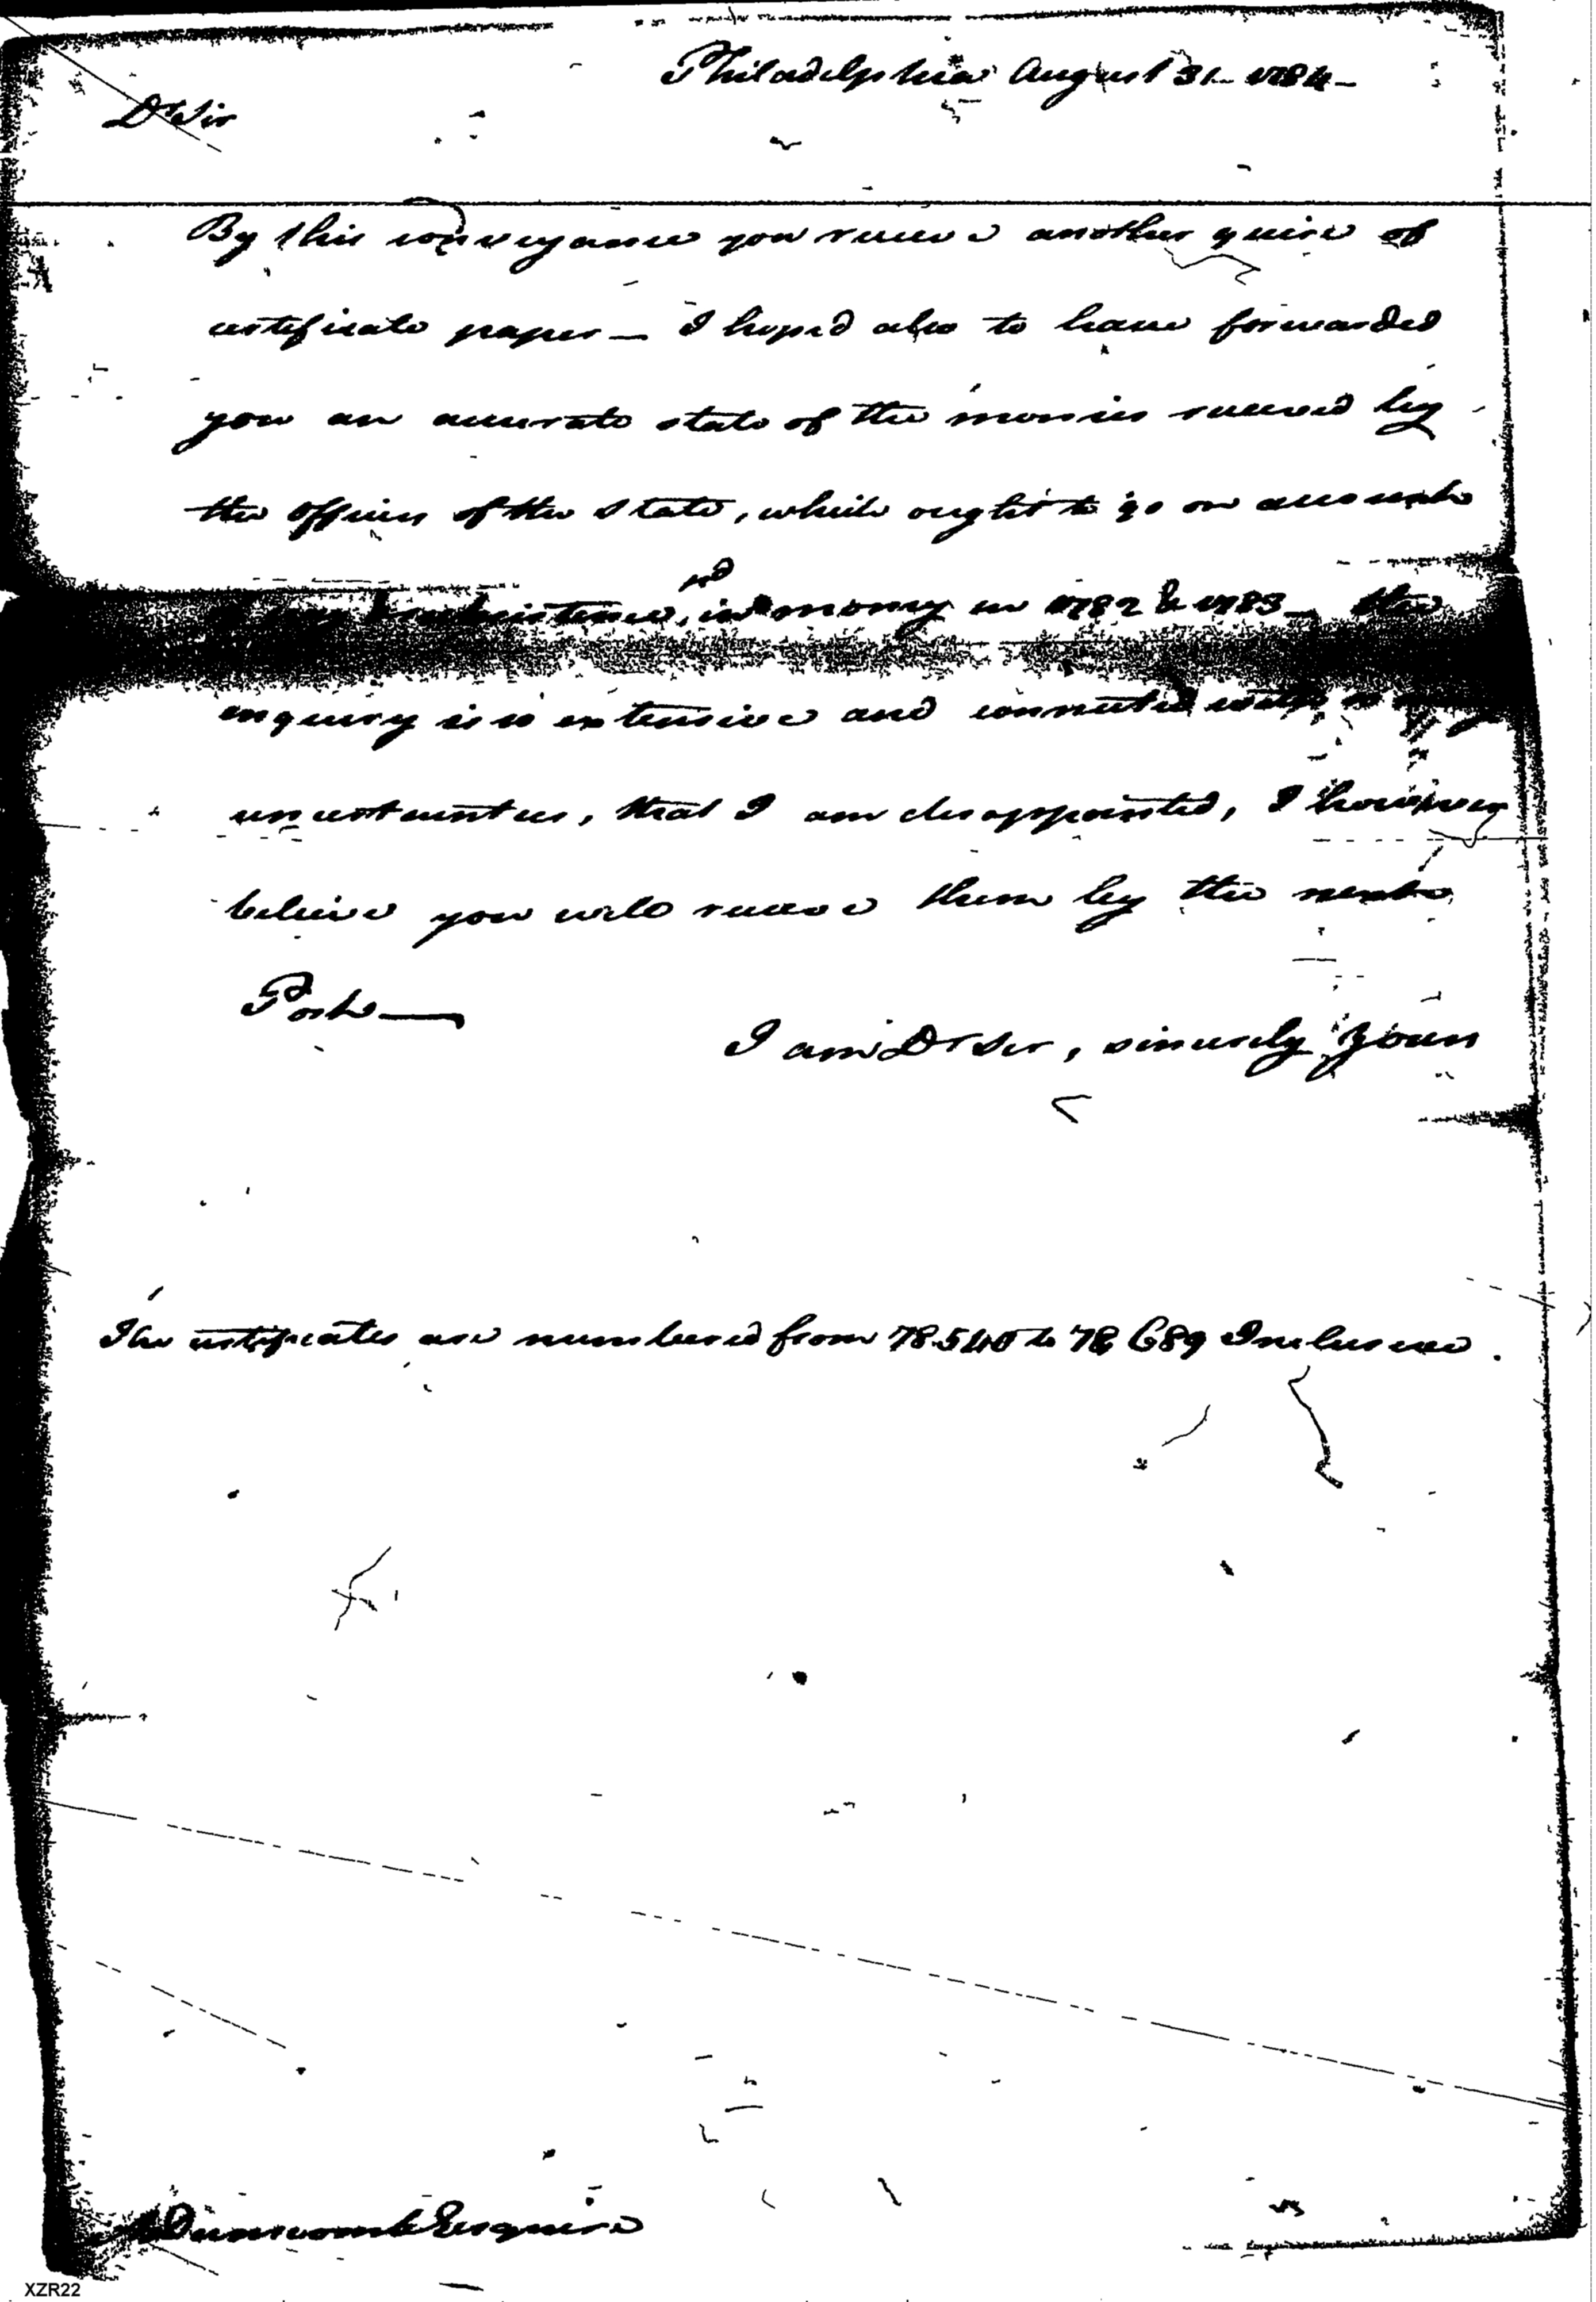 Philadelphia August 31 - 1784 -
Dr Sir
By this conveyance you receive another quire of
certificate paper — I hoped also to have forwarded
you an accurate state of the monies received by
the officers of the State, which ought to go on account
subsistence, in money in 1782 & 1783 - the
enquiry is so extensive and connected with so
uncertainties, that I am disappointed, I however
believe you will receive them by the next
Post —
I am Dr Sir, sincerely yours
The certificates are numbered from 78540 to 78689 Inclusive.
Dunscomb Esquire
XZR22